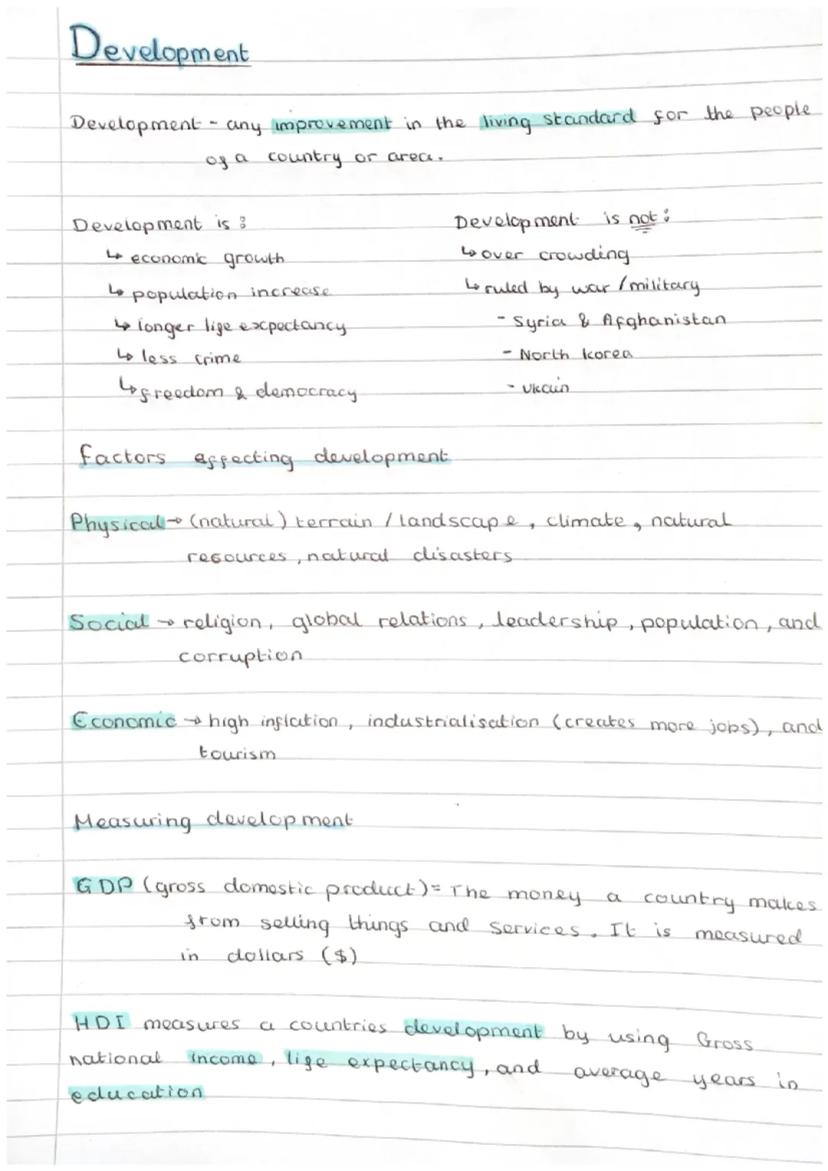 Development
Development - any improvement in the living standard for the people
of a country or area.
Development is :
↳ economic growth
↳ population increase
↳ longer life expectancy
↳ less crime
↳ freedom & democracy
Development is not :
↳ over crowding
↳ ruled by war / military
- Syria & Afghanistan
- North korea
- Ukain
Factors effecting development
Physical → (natural) terrain / landscape, climate, natural
resources, natural disasters
Social → religion, global relations, leadership, population, and
corruption
Economic → high inflation, industrialisation (creates more jobs), and
tourism
Measuring development
GDP (gross domestic product) = The money a country makes
from selling things and services. It is measured
in dollars ($)
HDI measures a countries development by using Gross
national income, life expectancy, and average years in
education